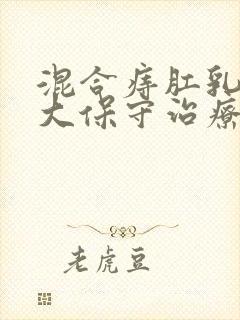 混合痔肛乳
大保守治疗
老虎豆